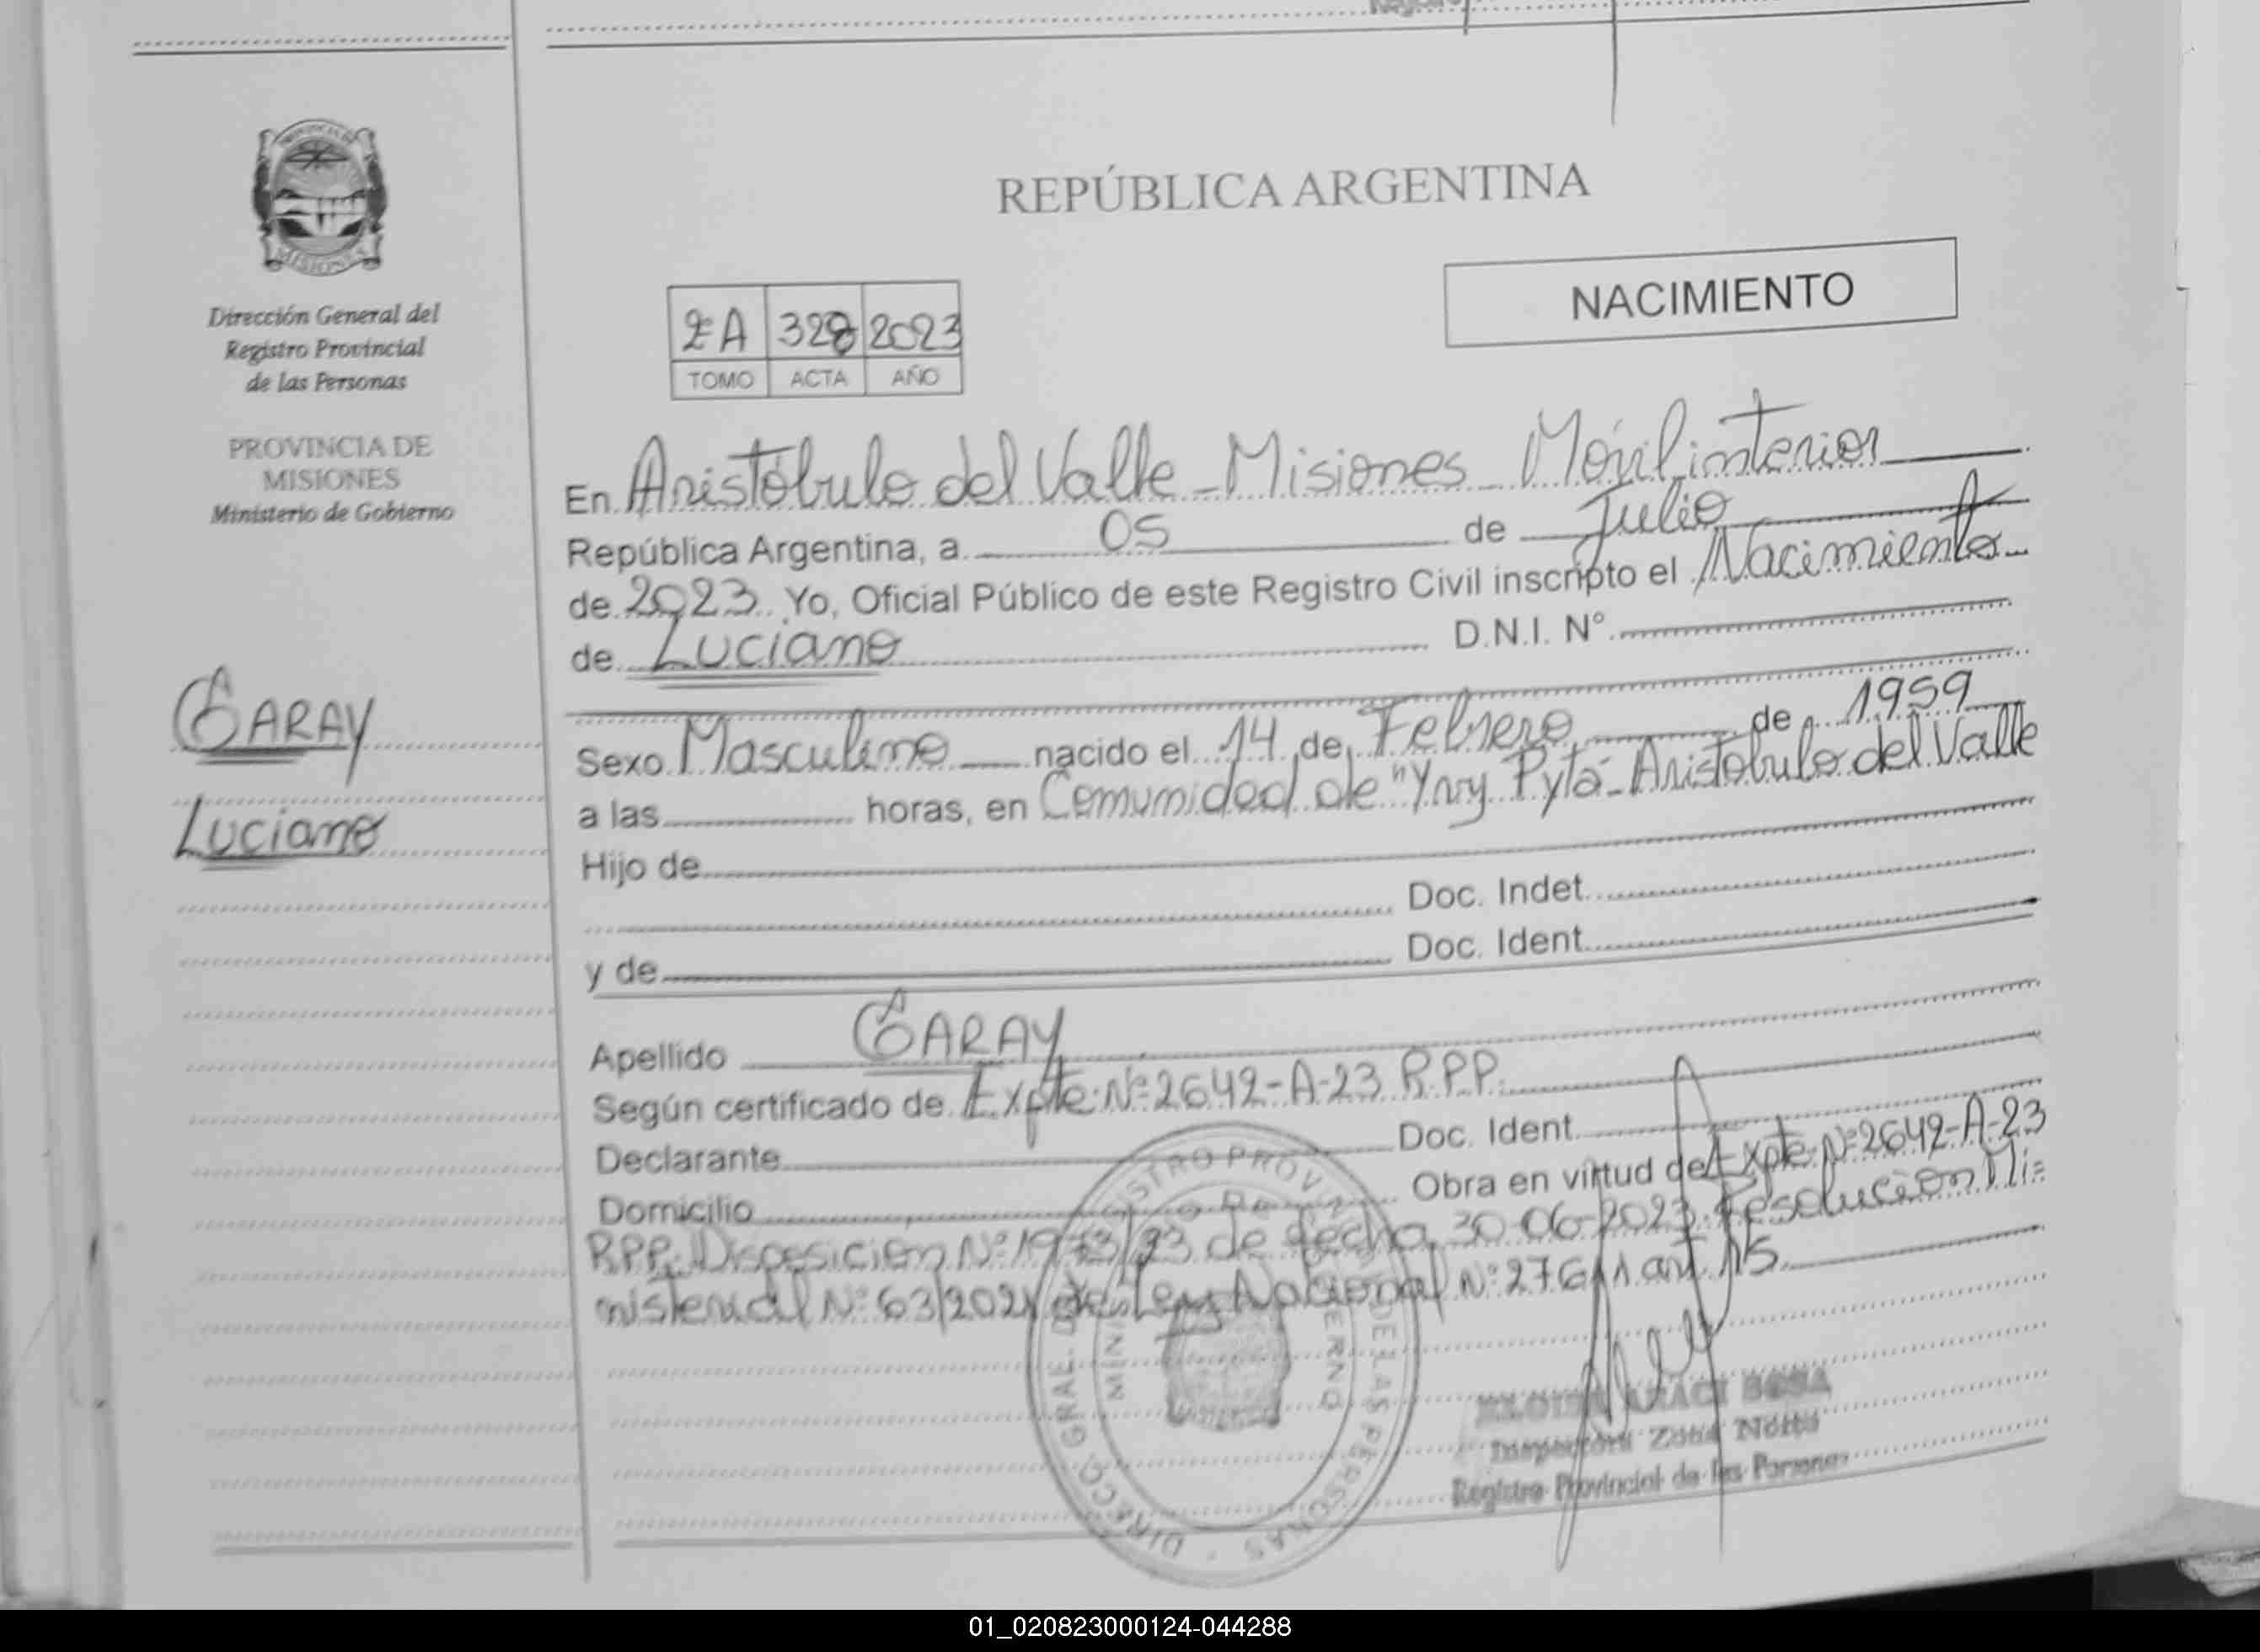 REPÚBLICA ARGENTINA
NACIMIENTO
PROVINCIA DE
MISIONES
Dirección General del
Registro Provincial
de las Personas
PROVINCIA DE
MISIONES
Ministerio de Gobierno
GARAY
Luciano
2ºA 328 2023
TOMO ACTA AÑO
En Aristóbulo del Valle - Misiones - Móvil interior
República Argentina, a 05 de Julio
de 2023 Yo, Oficial Público de este Registro Civil inscripto el Nacimiento
de Luciano D.N.I. N°
Sexo Masculino nacido el 14 de Febrero de 1959
a las horas, en Comunidad de "Yvy Pytá- Aristobulo del Valle
Hijo de
Doc. Indet.
y de Doc. Ident.
Apellido GARAY
Según certificado de Expte. Nº 2642-A-23 R.P.P.
Declarante Doc. Ident.
Domicilio Obra en virtud de Expte. Nº 2642-A-23
RPP. Disposición Nº 1973/23 de fecha 30-06-2023. Resolución Mi=
nisterial Nº 63/2021 de Ley Nacional Nº 27611 art 15.
DIRECC. GRAL. DEL REGISTRO PROVINCIAL DE LAS PERSONAS
MINISTERIO DE GOBIERNO
MISIONES
ELOISA ARACI SOSA
Inspectora Zona Norte
Registro Provincial de las Personas
01_020823000124-044288